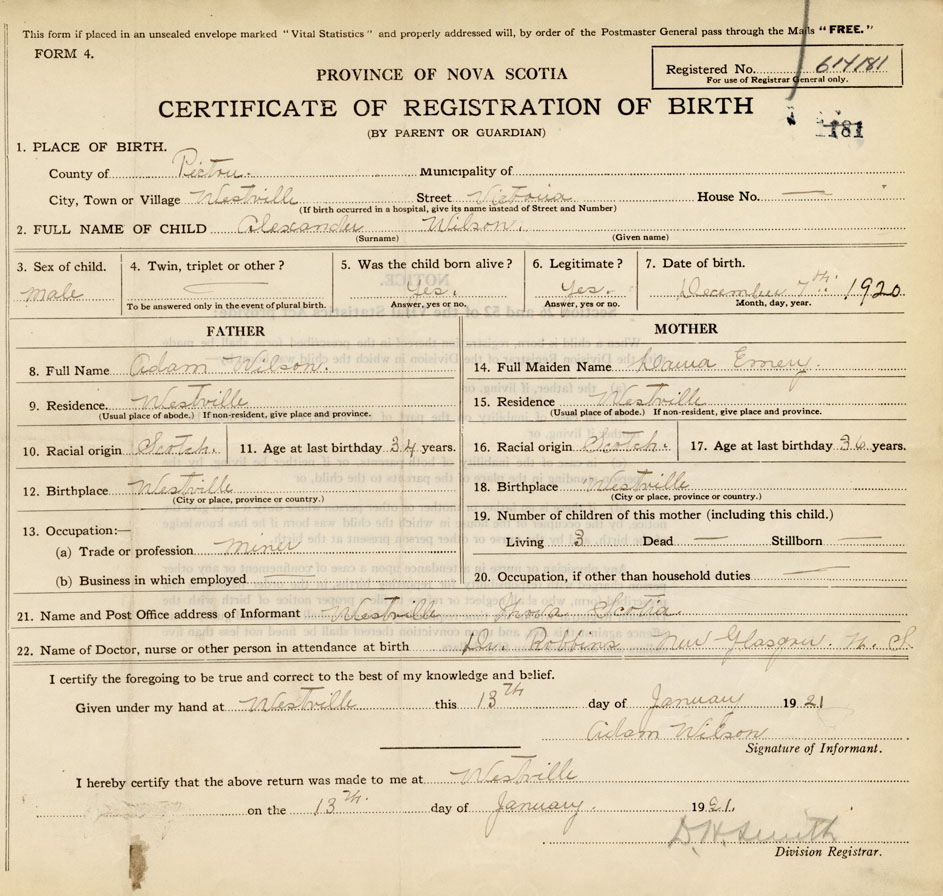 This form if placed in an unsealed envelope marked "Vital Statistics" and properly addressed will, by order of the Postmaster General pass through the Mails "FREE."
FORM 4.
Registered No. 614181
For use of Registrar General only.
PROVINCE OF NOVA SCOTIA
CERTIFICATE OF REGISTRATION OF BIRTH
181
(BY PARENT OR GUARDIAN)
1. PLACE OF BIRTH.
County of Pictou. Municipality of
City, Town or Village Westville Street Victoria House No. —
(If birth occurred in a hospital, give its name instead of Street and Number)
2. FULL NAME OF CHILD Alexander Wilson.
(Surname) (Given name)
3. Sex of child. 4. Twin, triplet or other? 5. Was the child born alive? 6. Legitimate? 7. Date of birth.
Male — Yes. Yes. December 7th 1920
To be answered only in the event of plural birth. Answer, yes or no. Answer, yes or no. Month, day, year.
FATHER MOTHER
8. Full Name Adam Wilson. 14. Full Maiden Name Emery.
9. Residence. Westville 15. Residence Westville
(Usual place of abode.) If non-resident, give place and province. (Usual place of abode.) If non-resident, give place and province.
10. Racial origin Scotch. 11. Age at last birthday 34 years. 16. Racial origin Scotch. 17. Age at last birthday 36 years.
12. Birthplace Westville 18. Birthplace Westville
(City or place, province or country.) (City or place, province or country.)
13. Occupation:— 19. Number of children of this mother (including this child.)
(a) Trade or profession Miner Living 3 Dead — Stillborn —
(b) Business in which employed — 20. Occupation, if other than household duties —
21. Name and Post Office address of Informant Westville Nova Scotia
22. Name of Doctor, nurse or other person in attendance at birth Dr. Robbins New Glasgow. N. S.
I certify the foregoing to be true and correct to the best of my knowledge and belief.
Given under my hand at Westville this 13th day of January 1921
Adam Wilson
Signature of Informant.
I hereby certify that the above return was made to me at Westville
on the 13th. day of January. 1921.
D. H. Smith
Division Registrar.